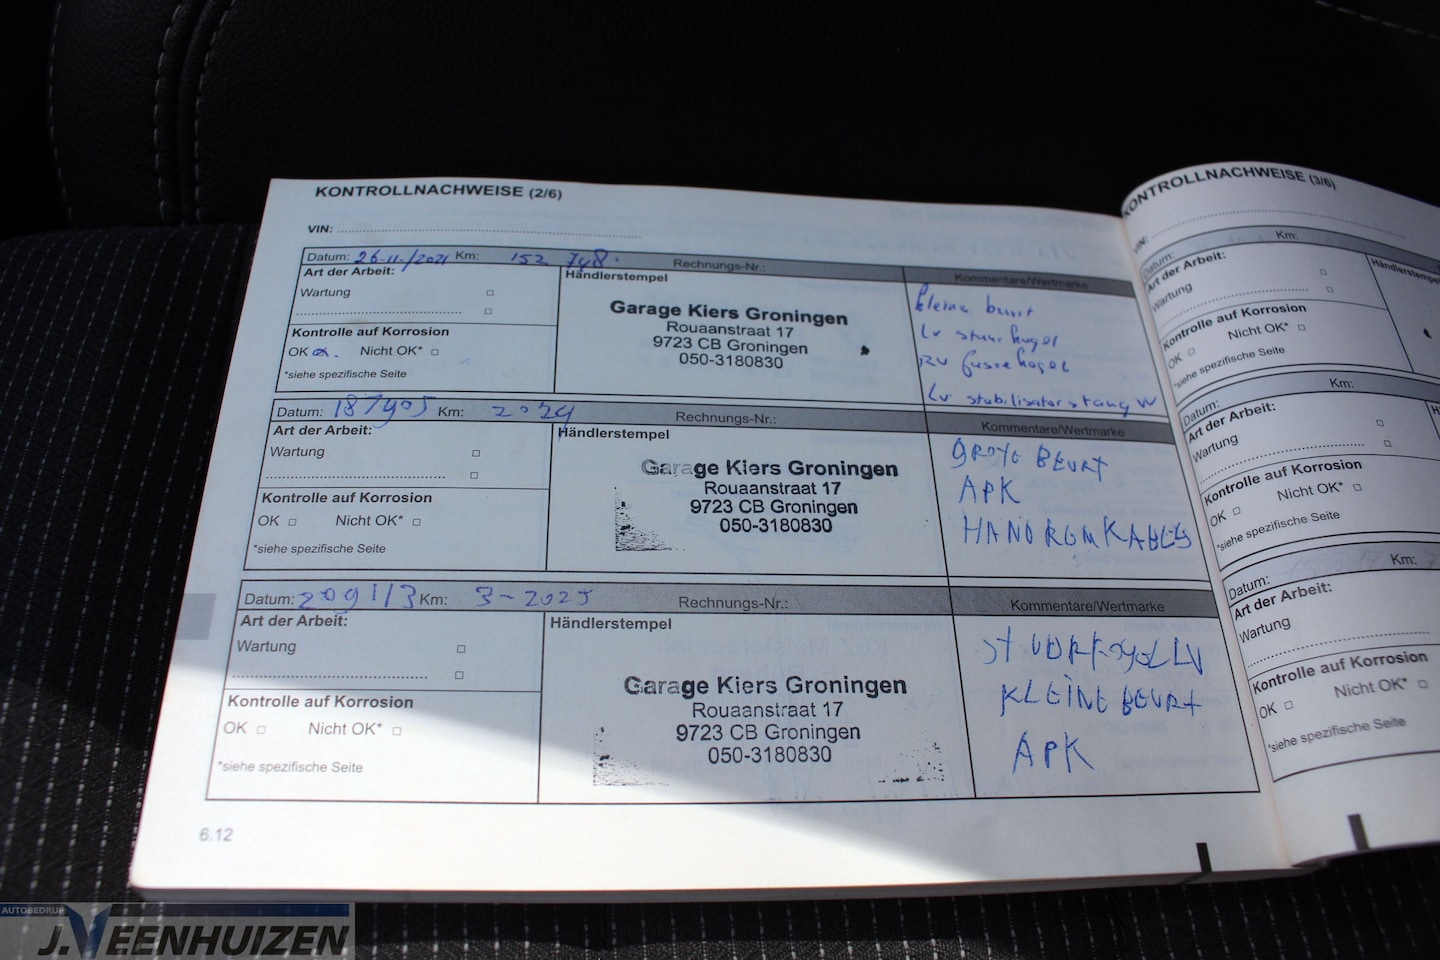 KONTROLLNACHWEISE (2/6)
VIN:
Datum: 26-11-/2021 Km: 152 748. Rechnungs-Nr.:
Art der Arbeit:
Wartung
Kontrolle auf Korrosion
OK Nicht OK*
*siehe spezifische Seite
Händlerstempel
Garage Kiers Groningen
Rouaanstraat 17
9723 CB Groningen
050-3180830
Kommentare/Wertmarke
kleine beurt
LV stuurkogel
RV fuseekogel
LV stabilisatorstang
Datum: 187905 Km: 2024 Rechnungs-Nr.:
Art der Arbeit:
Wartung
Kontrolle auf Korrosion
OK Nicht OK*
*siehe spezifische Seite
Händlerstempel
Garage Kiers Groningen
Rouaanstraat 17
9723 CB Groningen
050-3180830
Kommentare/Wertmarke
GROTE BEURT
APK
HANDREMKABELS
Datum: 209113 Km: 3-2025 Rechnungs-Nr.:
Art der Arbeit:
Wartung
Kontrolle auf Korrosion
OK Nicht OK*
*siehe spezifische Seite
Händlerstempel
Garage Kiers Groningen
Rouaanstraat 17
9723 CB Groningen
050-3180830
Kommentare/Wertmarke
STUURKOGEL LV
KLEINE BEURT
APK
6.12
KONTROLLNACHWEISE (3/6)
VIN:
Datum: Km:
Art der Arbeit:
Wartung
Kontrolle auf Korrosion
OK Nicht OK*
*siehe spezifische Seite
Händlerstempel
Datum: Km:
Art der Arbeit:
Wartung
Kontrolle auf Korrosion
OK Nicht OK*
*siehe spezifische Seite
Datum: Km:
Art der Arbeit:
Wartung
Kontrolle auf Korrosion
OK Nicht OK*
*siehe spezifische Seite
AUTOBEDRIJF
J.VEENHUIZEN